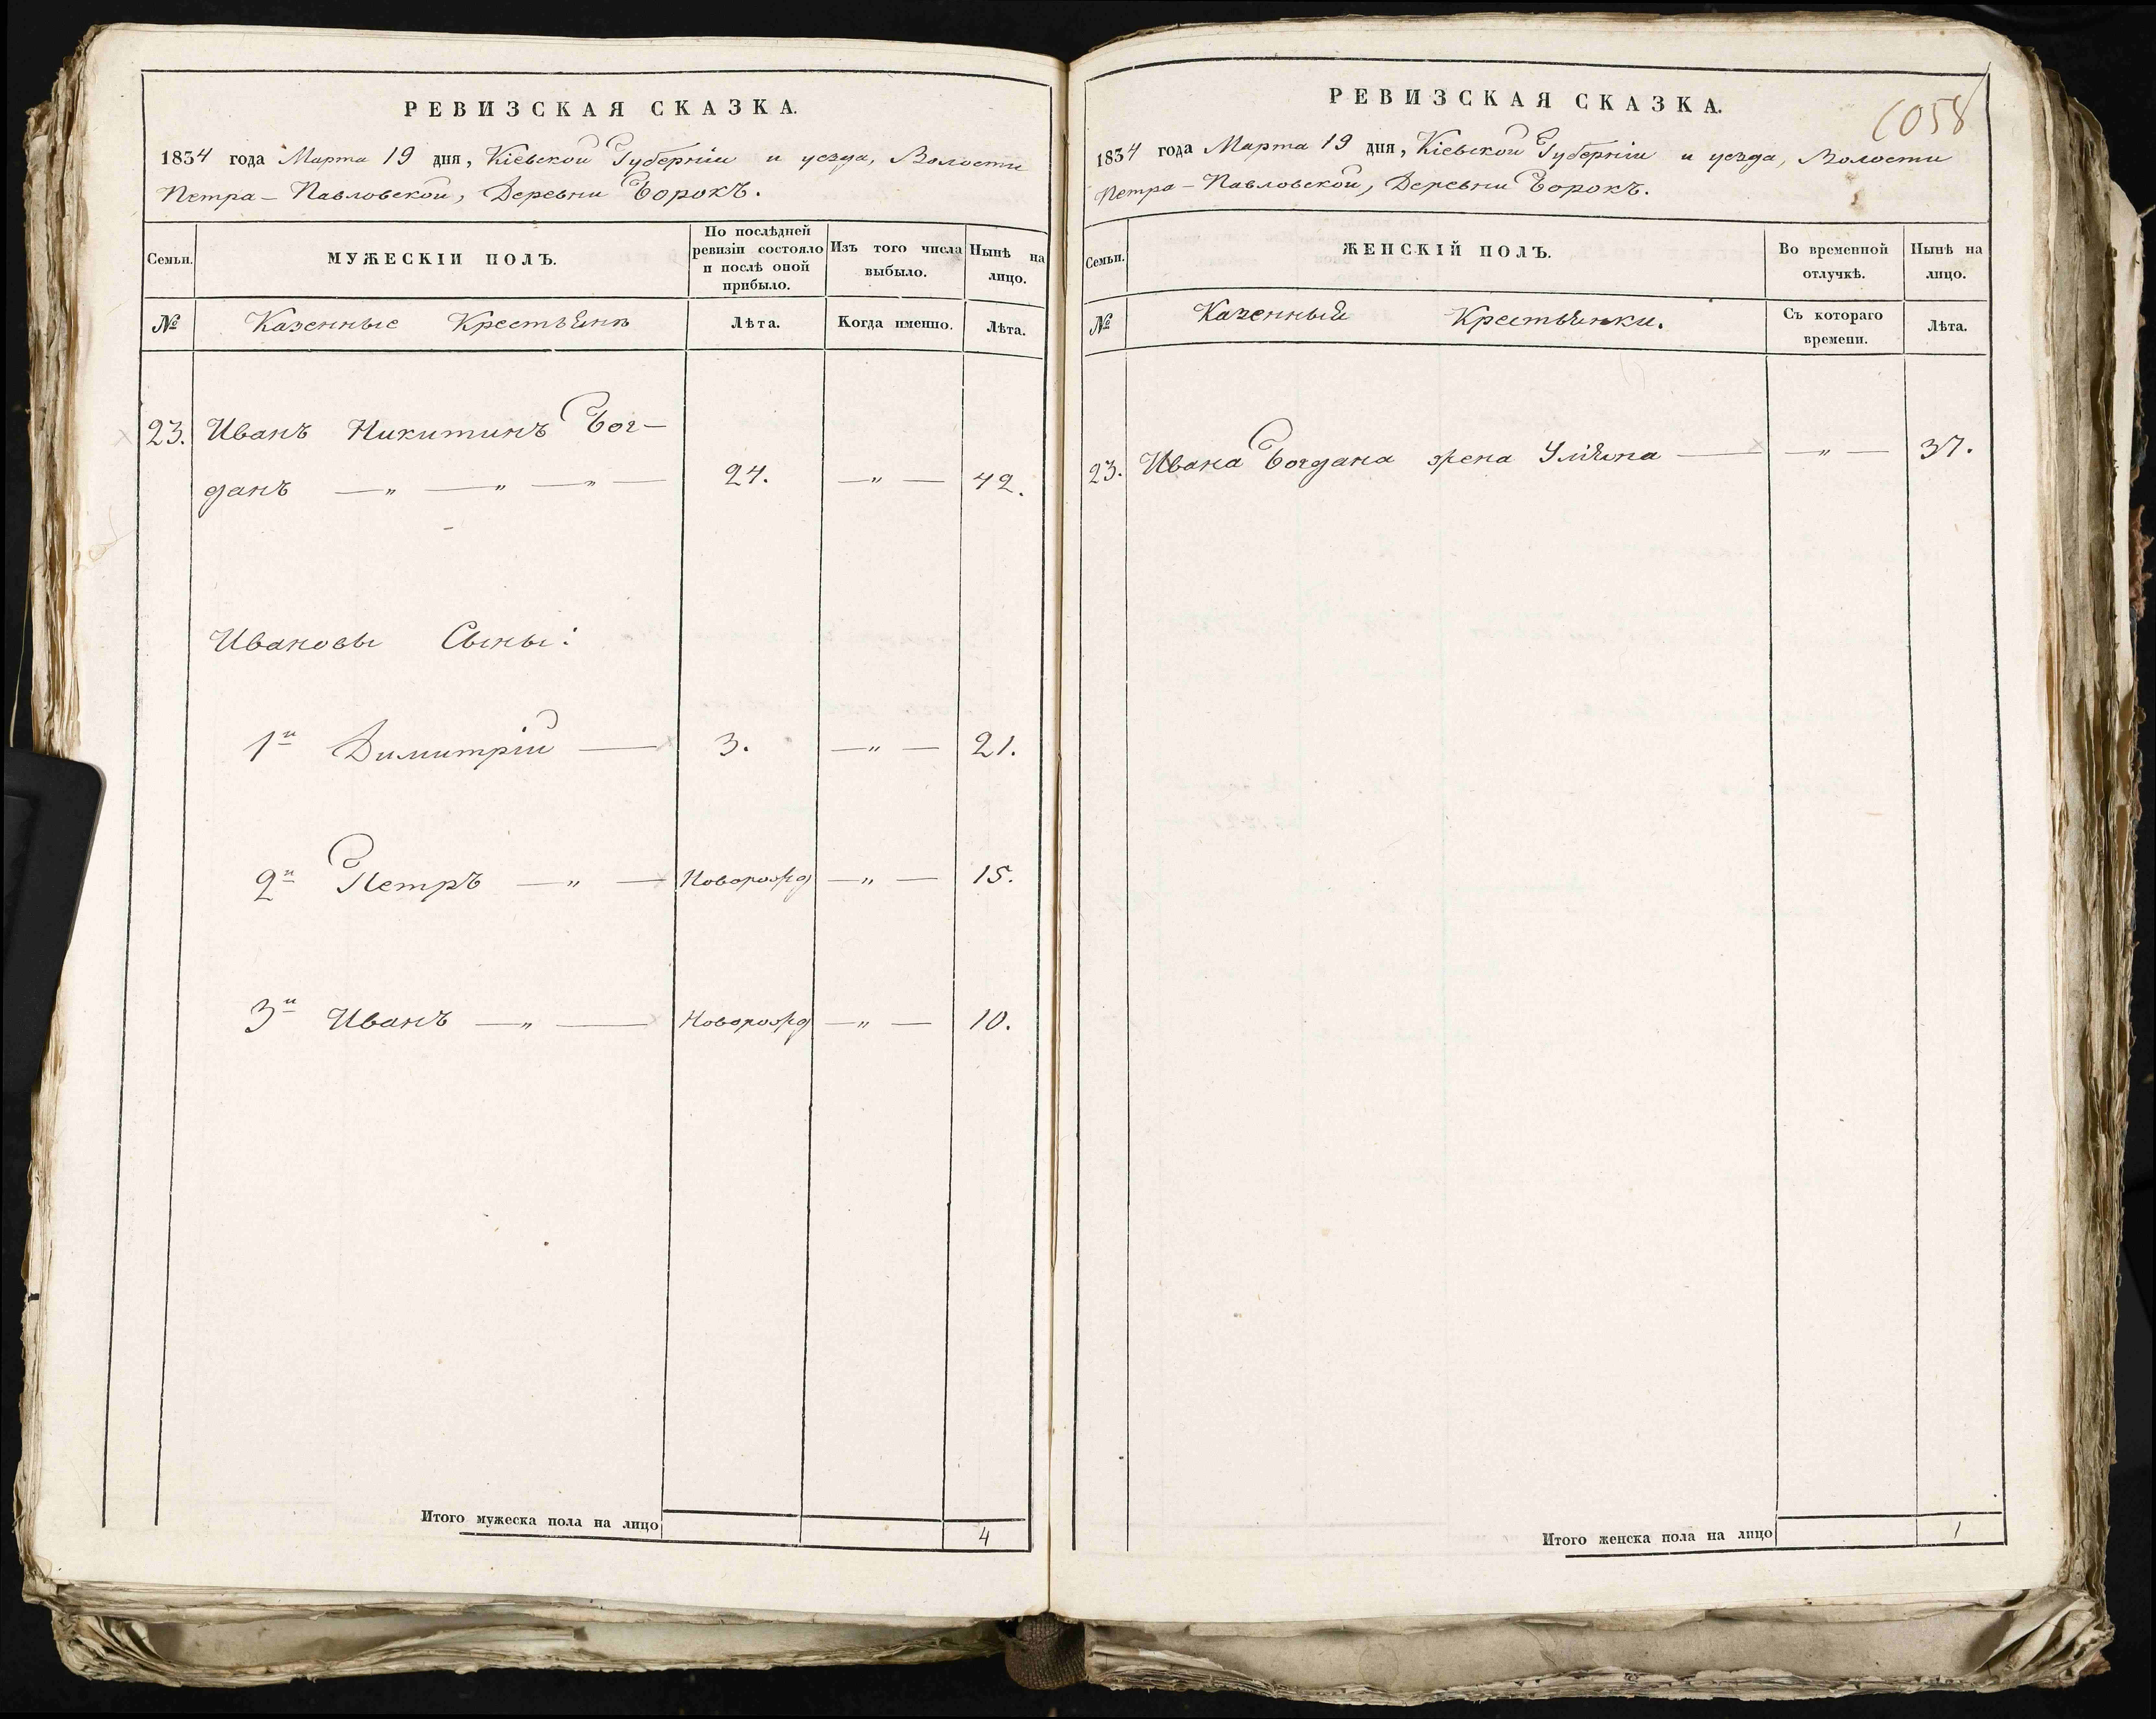 РЕВИЗСКАЯ СКАЗКА.
1834 года Марта 19 дня, Кіевской Губерніи и уезда, Волости
Петра-Павловской, Деревни Борокъ.
Семьи.
МУЖЕСКІЙ ПОЛЪ.
По послѣдней
ревизіи состояло
и послѣ оной
прибыло.
Изъ того числа
выбыло.
Нынѣ на
лицо.
№
Казенные Крестьяня
Лѣта.
Когда именно.
Лѣта.
23. Иванъ Никитинъ Бог-
данъ — „ — „ — „ — 24. — „ — 42.
Ивановы Сыны:
1й Димитрій — 3. — „ — 21.
2й Петръ — „ — Новорожд — „ — 15.
3й Иванъ — „ — Новорожд — „ — 10.
Итого мужеска пола на лицо 4
РЕВИЗСКАЯ СКАЗКА.
1058
1834 года Марта 19 дня, Кіевской Губерніи и уезда, Волости
Петра-Павловской, Деревни Борокъ.
Семьи.
ЖЕНСКІЙ ПОЛЪ.
Во временной
отлучкѣ.
Нынѣ на
лицо.
№
Казенныя Крестьянки.
Съ котораго
времени.
Лѣта.
23. Ивана Богдана жена Уліяна — — „ — 37.
Итого женска пола на лицо 1